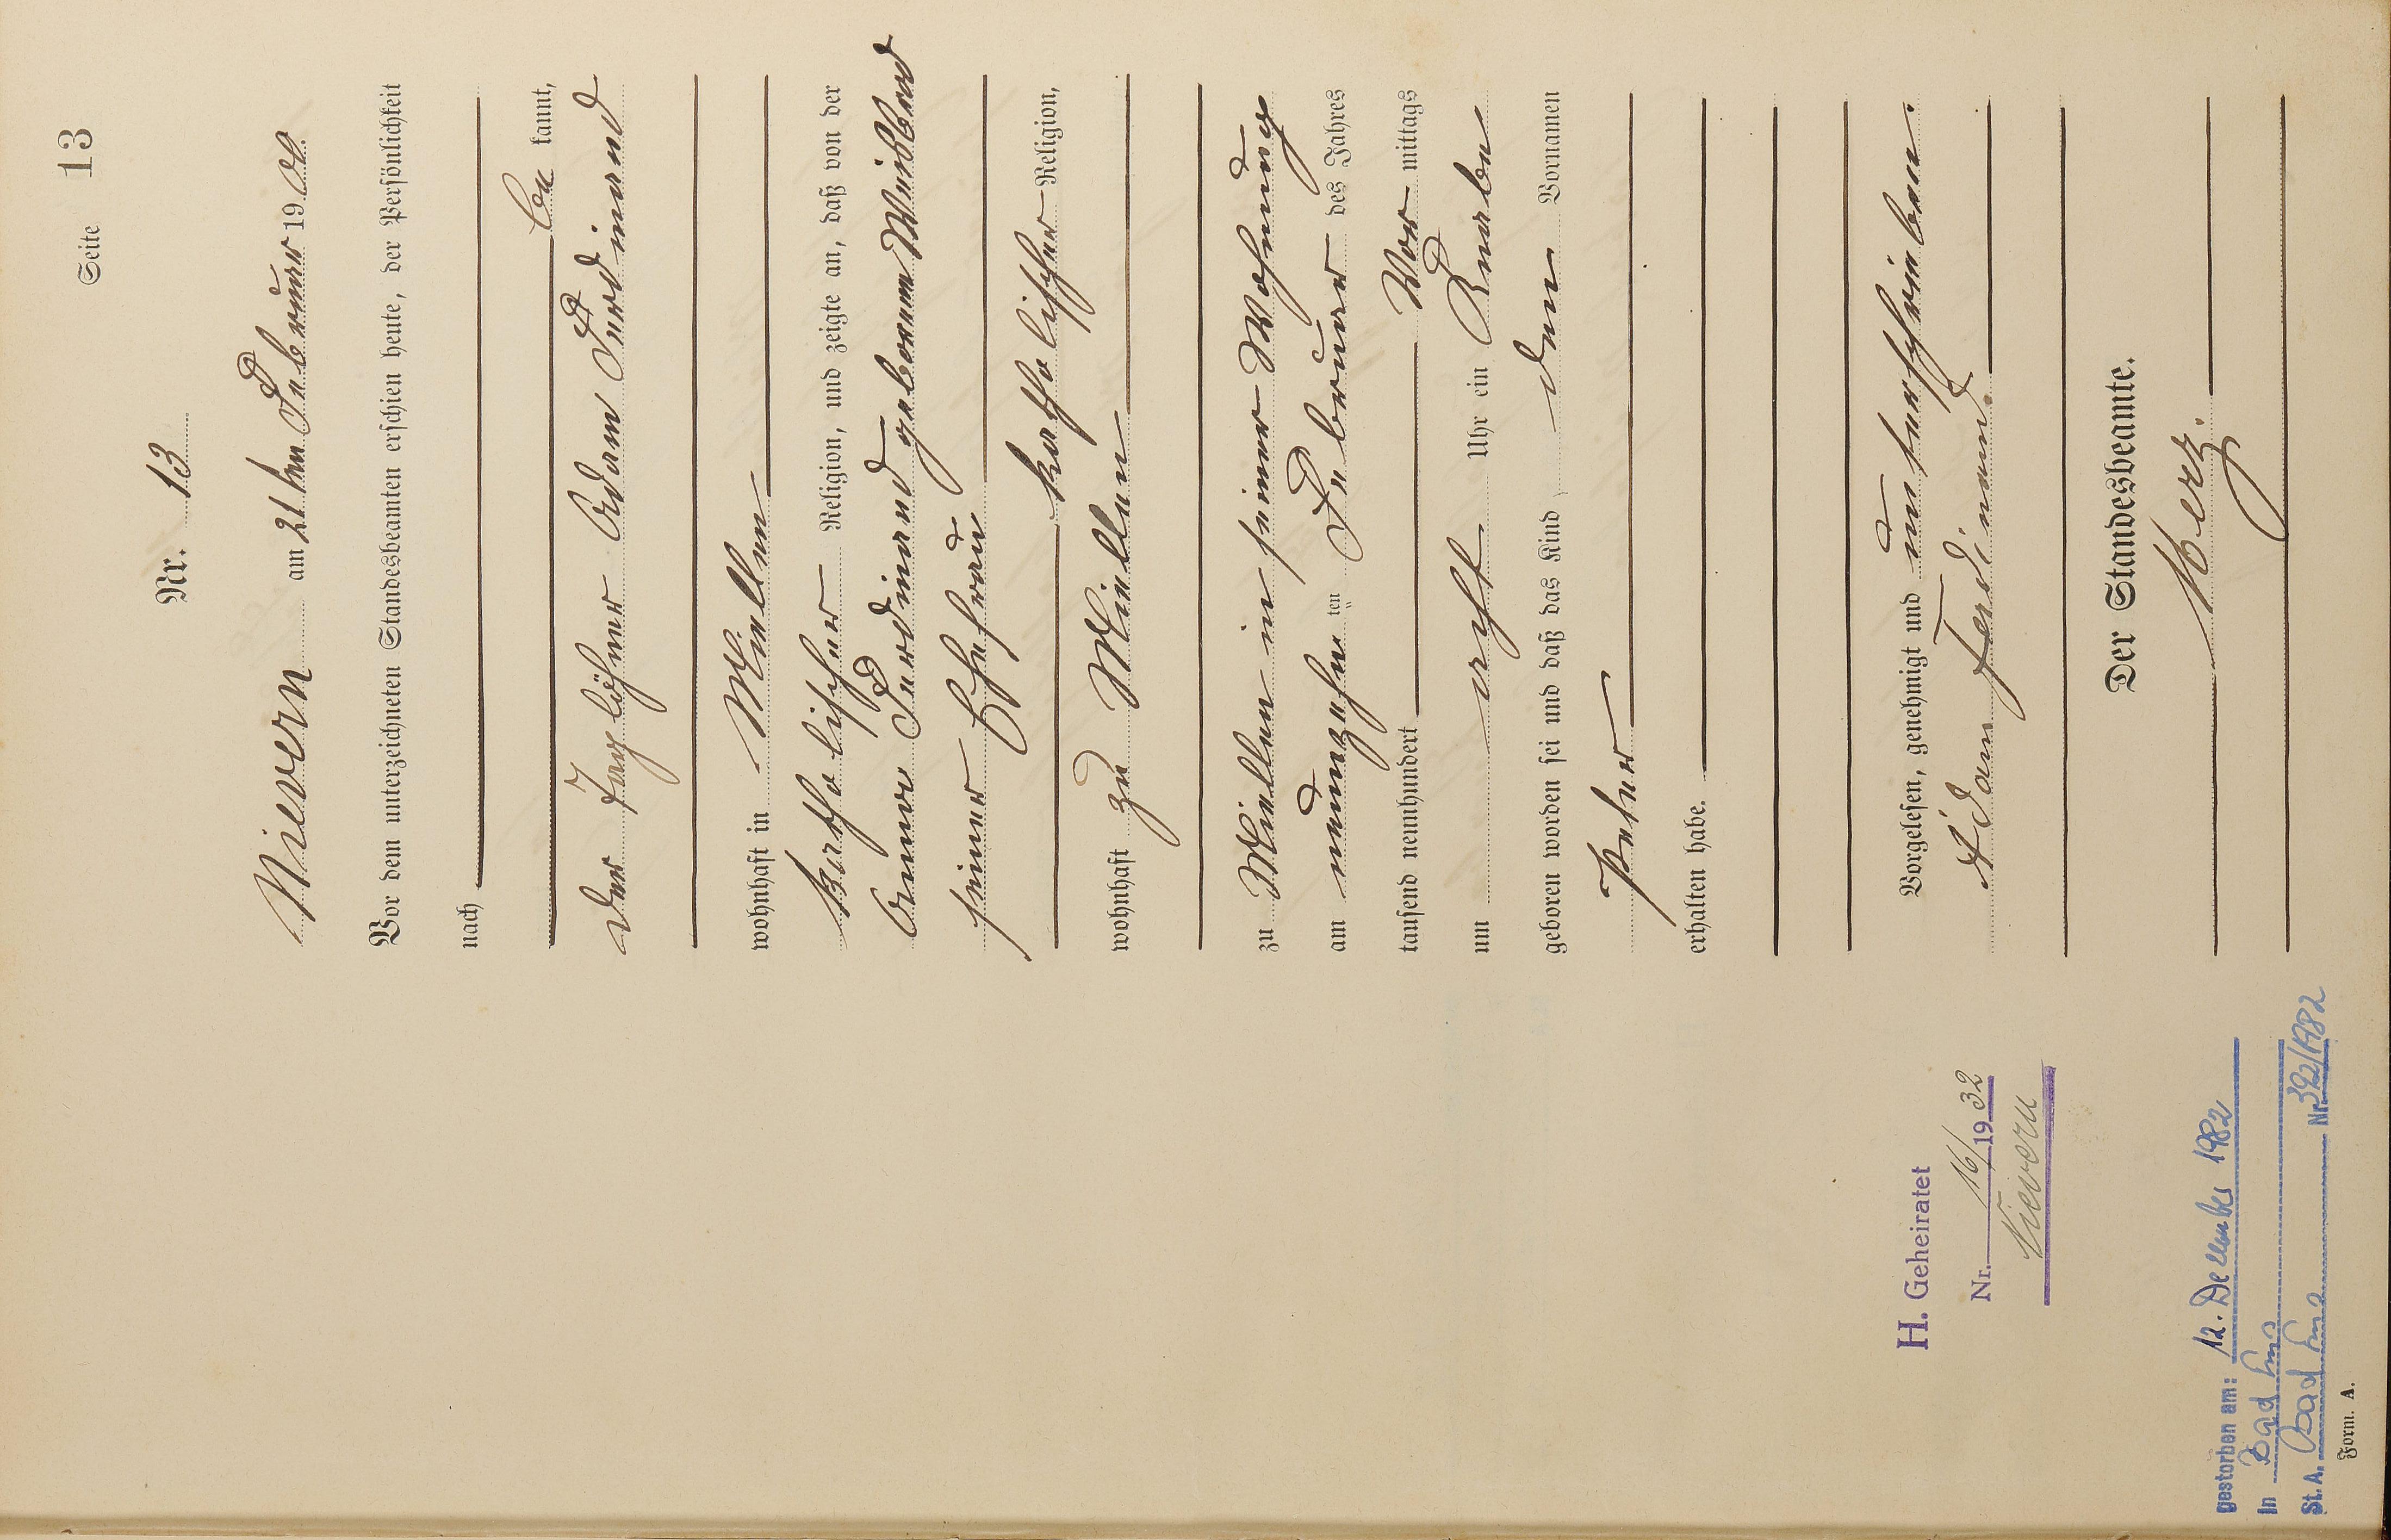 Seite 13
Nr. 13
Nievern am 21ten Februar 19
Vor dem unterzeichneten Standesbeamten erschien heute, der Persönlichkeit
nach
be kannt,
der Taglöhner Adam Ferdinand
wohnhaft in Miellen
katholischer Religion, und zeigte an, daß von der
Anna Ferdinand geborenen
seiner Ehefrau
katholischer Religion,
wohnhaft zu Miellen
zu Miellen in seiner Wohnung
am neunzehn ten Februar des Jahres
tausend neunhundert Vor mittags
um acht Uhr ein Knabe
geboren worden sei und daß das Kind den Vornamen
Peter
erhalten habe.
Vorgelesen, genehmigt und unterschrieben.
Adam Ferdinand.
Der Standesbeamte.
Herz.
H. Geheiratet
Nr. 16/1932
Nievern
gestorben am: 12. Dezember 1982
in Bad Ems
St. A. Bad Ems Nr. 392/1982
Form. A.